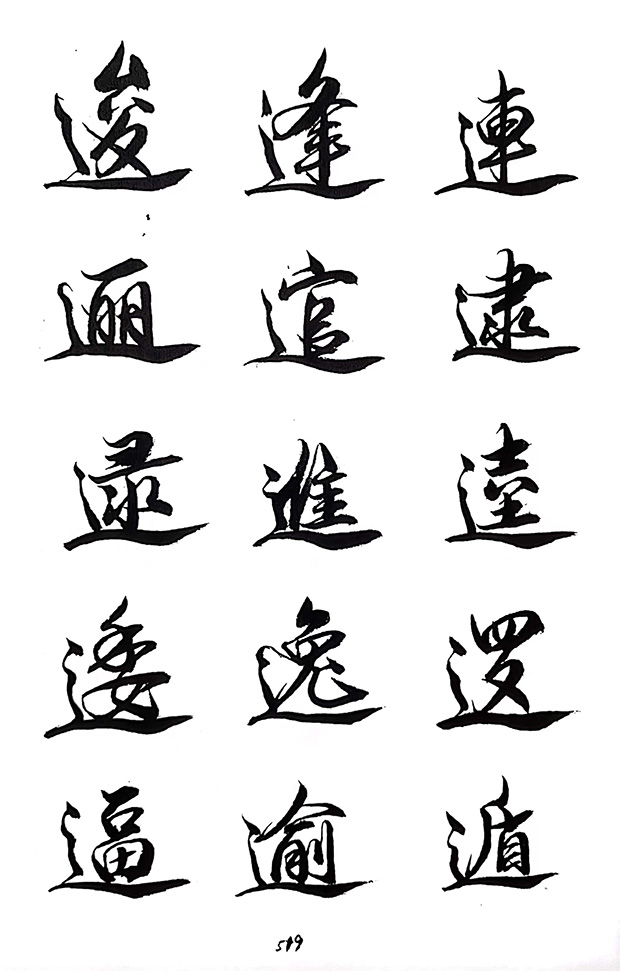 逡 逢 連
逦 逭 逮
逯 進 逵
逶 逸 逻
逼 逾 遁
519